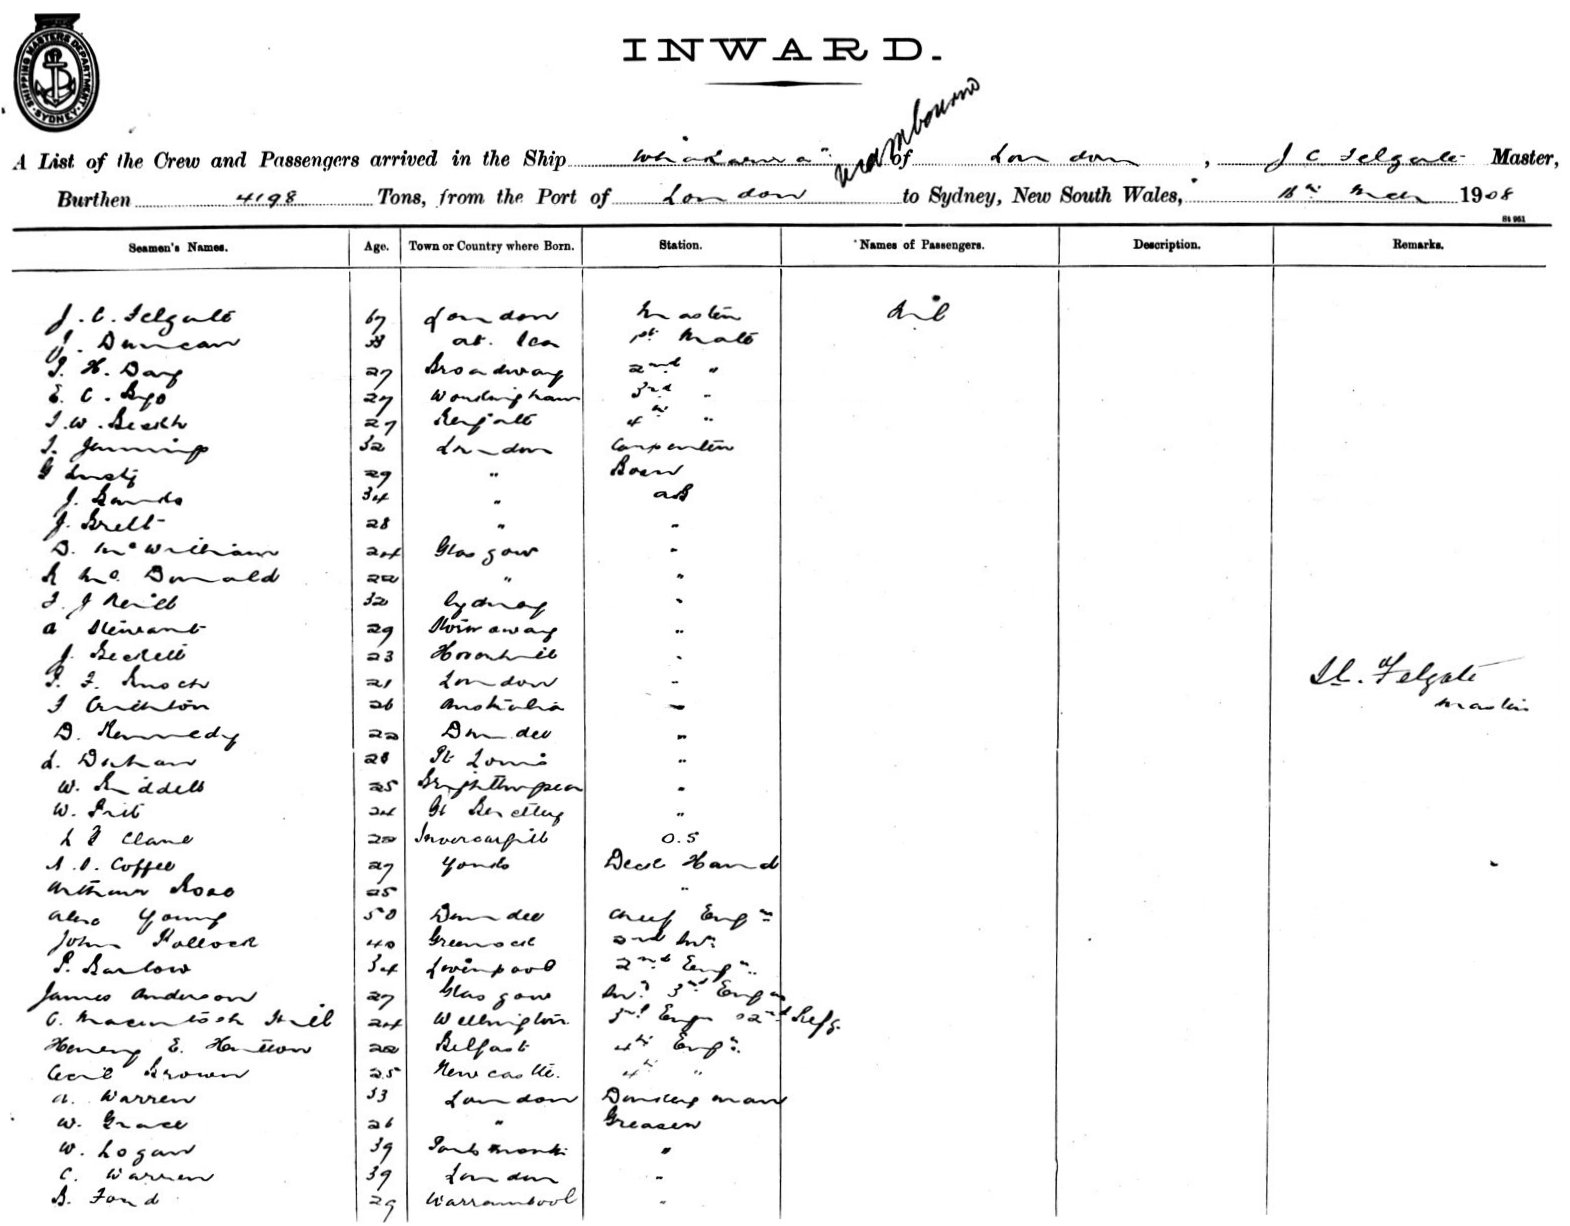 SHIPPING MASTERS DEPARTMENT SYDNEY
INWARD.
via Melbourne
A List of the Crew and Passengers arrived in the Ship Whakarua of London, J C Felgate Master,
Burthen 4198 Tons, from the Port of London to Sydney, New South Wales, 1908
Seamen's Names. Age. Town or Country where Born. Station. Names of Passengers. Description. Remarks.
J. C. Felgate 67 London Master Nil
J. Duncan 33 at Sea 1st Mate
H. Day 27 Broadway 2nd "
E. C. 27 3rd "
27 Reigate 4th "
Jennings 32 London Carpenter
G Lusty 29 " Bosn
J. Sands 34 " AB
J. Brett 28 " "
D. McWilliam 24 Glasgow "
R McDonald 22 " "
32 Sydney "
A Stewart 29 Stornaway "
J. Beckett 23 "
21 London "
26 Australia "
D. Kennedy 22 Dundee "
28 St Louis "
W. Riddell 25 "
W. 24 "
Clare 20 Invercargill O.S
Coffee 27 Deck Hand
Arthur Ross 25 "
Alex Young 50 Dundee Chief Engr
John Pollock 40 Greenock 2nd
Barlow 34 Liverpool 2nd Engr
James Anderson 27 Glasgow 3rd Engr
C. Macintosh Hill 24 Wellington 3rd Engr 2nd Refg
Henery E. Hutton 22 Belfast 4th Engr
Cecil Brown 25 Newcastle. 4th "
A. Warren 33 London Donkeyman
W. Grace 26 " Greaser
W. Logan 39 "
C. Warren 39 London "
B. Ford 29 Warrambool "
Felgate
Master